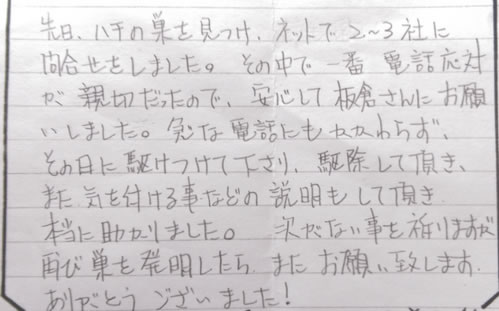 先日、ハチの巣を見つけ、ネットで2~3社に
問合せをしました。その中で一番 電話応対
が 親切だったので、安心して 板倉さんにお願
いしました。急な電話にもかかわらず、
その日に駆けつけて下さり、駆除して頂き、
また 気を付ける事などの 説明もして頂き
本当に助かりました。 次がない事を祈りますが
再び巣を発明したら またお願い致します.
ありがとう ございました!